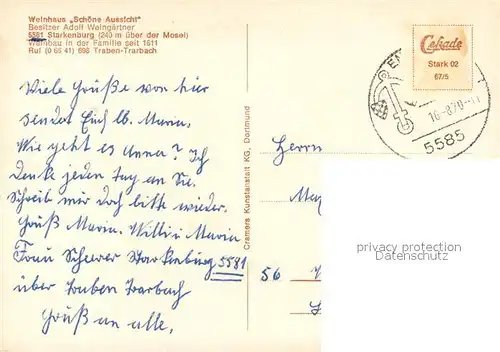 Weinhaus „Schöne Aussicht"
Besitzer Adolf Weingärtner
5581 Starkenburg (240 m über der Mosel)
Weinbau in der Familie seit 1611
Ruf (0 65 41) 698 Traben-Trarbach
Cekade
Stark 02
67/5
16.-8.70-11
5585
Viele Grüße von hier
sendet Euch lb. Maria.
Wie geht es Anna? Ich
denke jeden tag an Sie.
Schreib mir doch bitte wieder.
Gruß Maria. Willi u Maria
Frau Scherer Starkenburg 5581
über Traben Trarbach
Gruß an alle.
Cramers Kunstanstalt KG, Dortmund
Herrn
56
privacy protection
Datenschutz